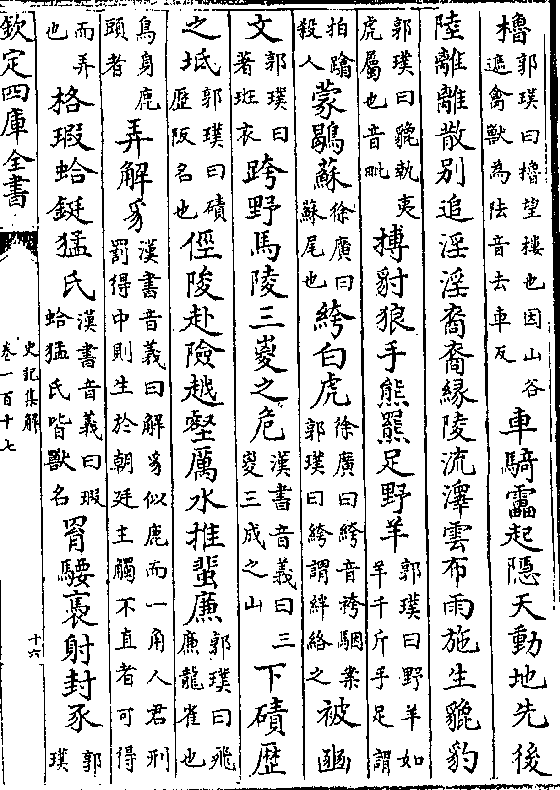 櫓郭璞曰櫓望樓也因山谷遮禽獸為阹音去車反車騎靁起隱天動地先後
陸離離散别追淫淫裔裔緣陵流澤雲布雨施生貔豹
郭璞曰貔執夷虎屬也音毗搏豺狼手熊羆足野羊郭璞曰野羊如羊千斤手足謂
拍蹹殺人蒙鶡蘇徐廣曰蘇尾也絝白虎徐廣曰絝音袴駰案郭璞曰絝謂絆絡之被豳
文郭璞曰著班衣跨野馬陵三嵏之危漢書音義曰三嵏三成之山下磧歴
之坻郭璞曰磧歴阪名也俓陖赴險越壑厲水推蜚廉郭璞曰飛廉龍雀也
鳥身鹿頭者弄解豸漢書音義曰解豸似鹿而一角人君刑罰得中則生於朝廷主觸不直者可得
而弄也格瑕蛤鋋猛氏漢書音義曰瑕蛤猛氏皆獸名罥騕褭射封豕郭璞
欽定四庫全書
史記集解
卷一百十七
十六